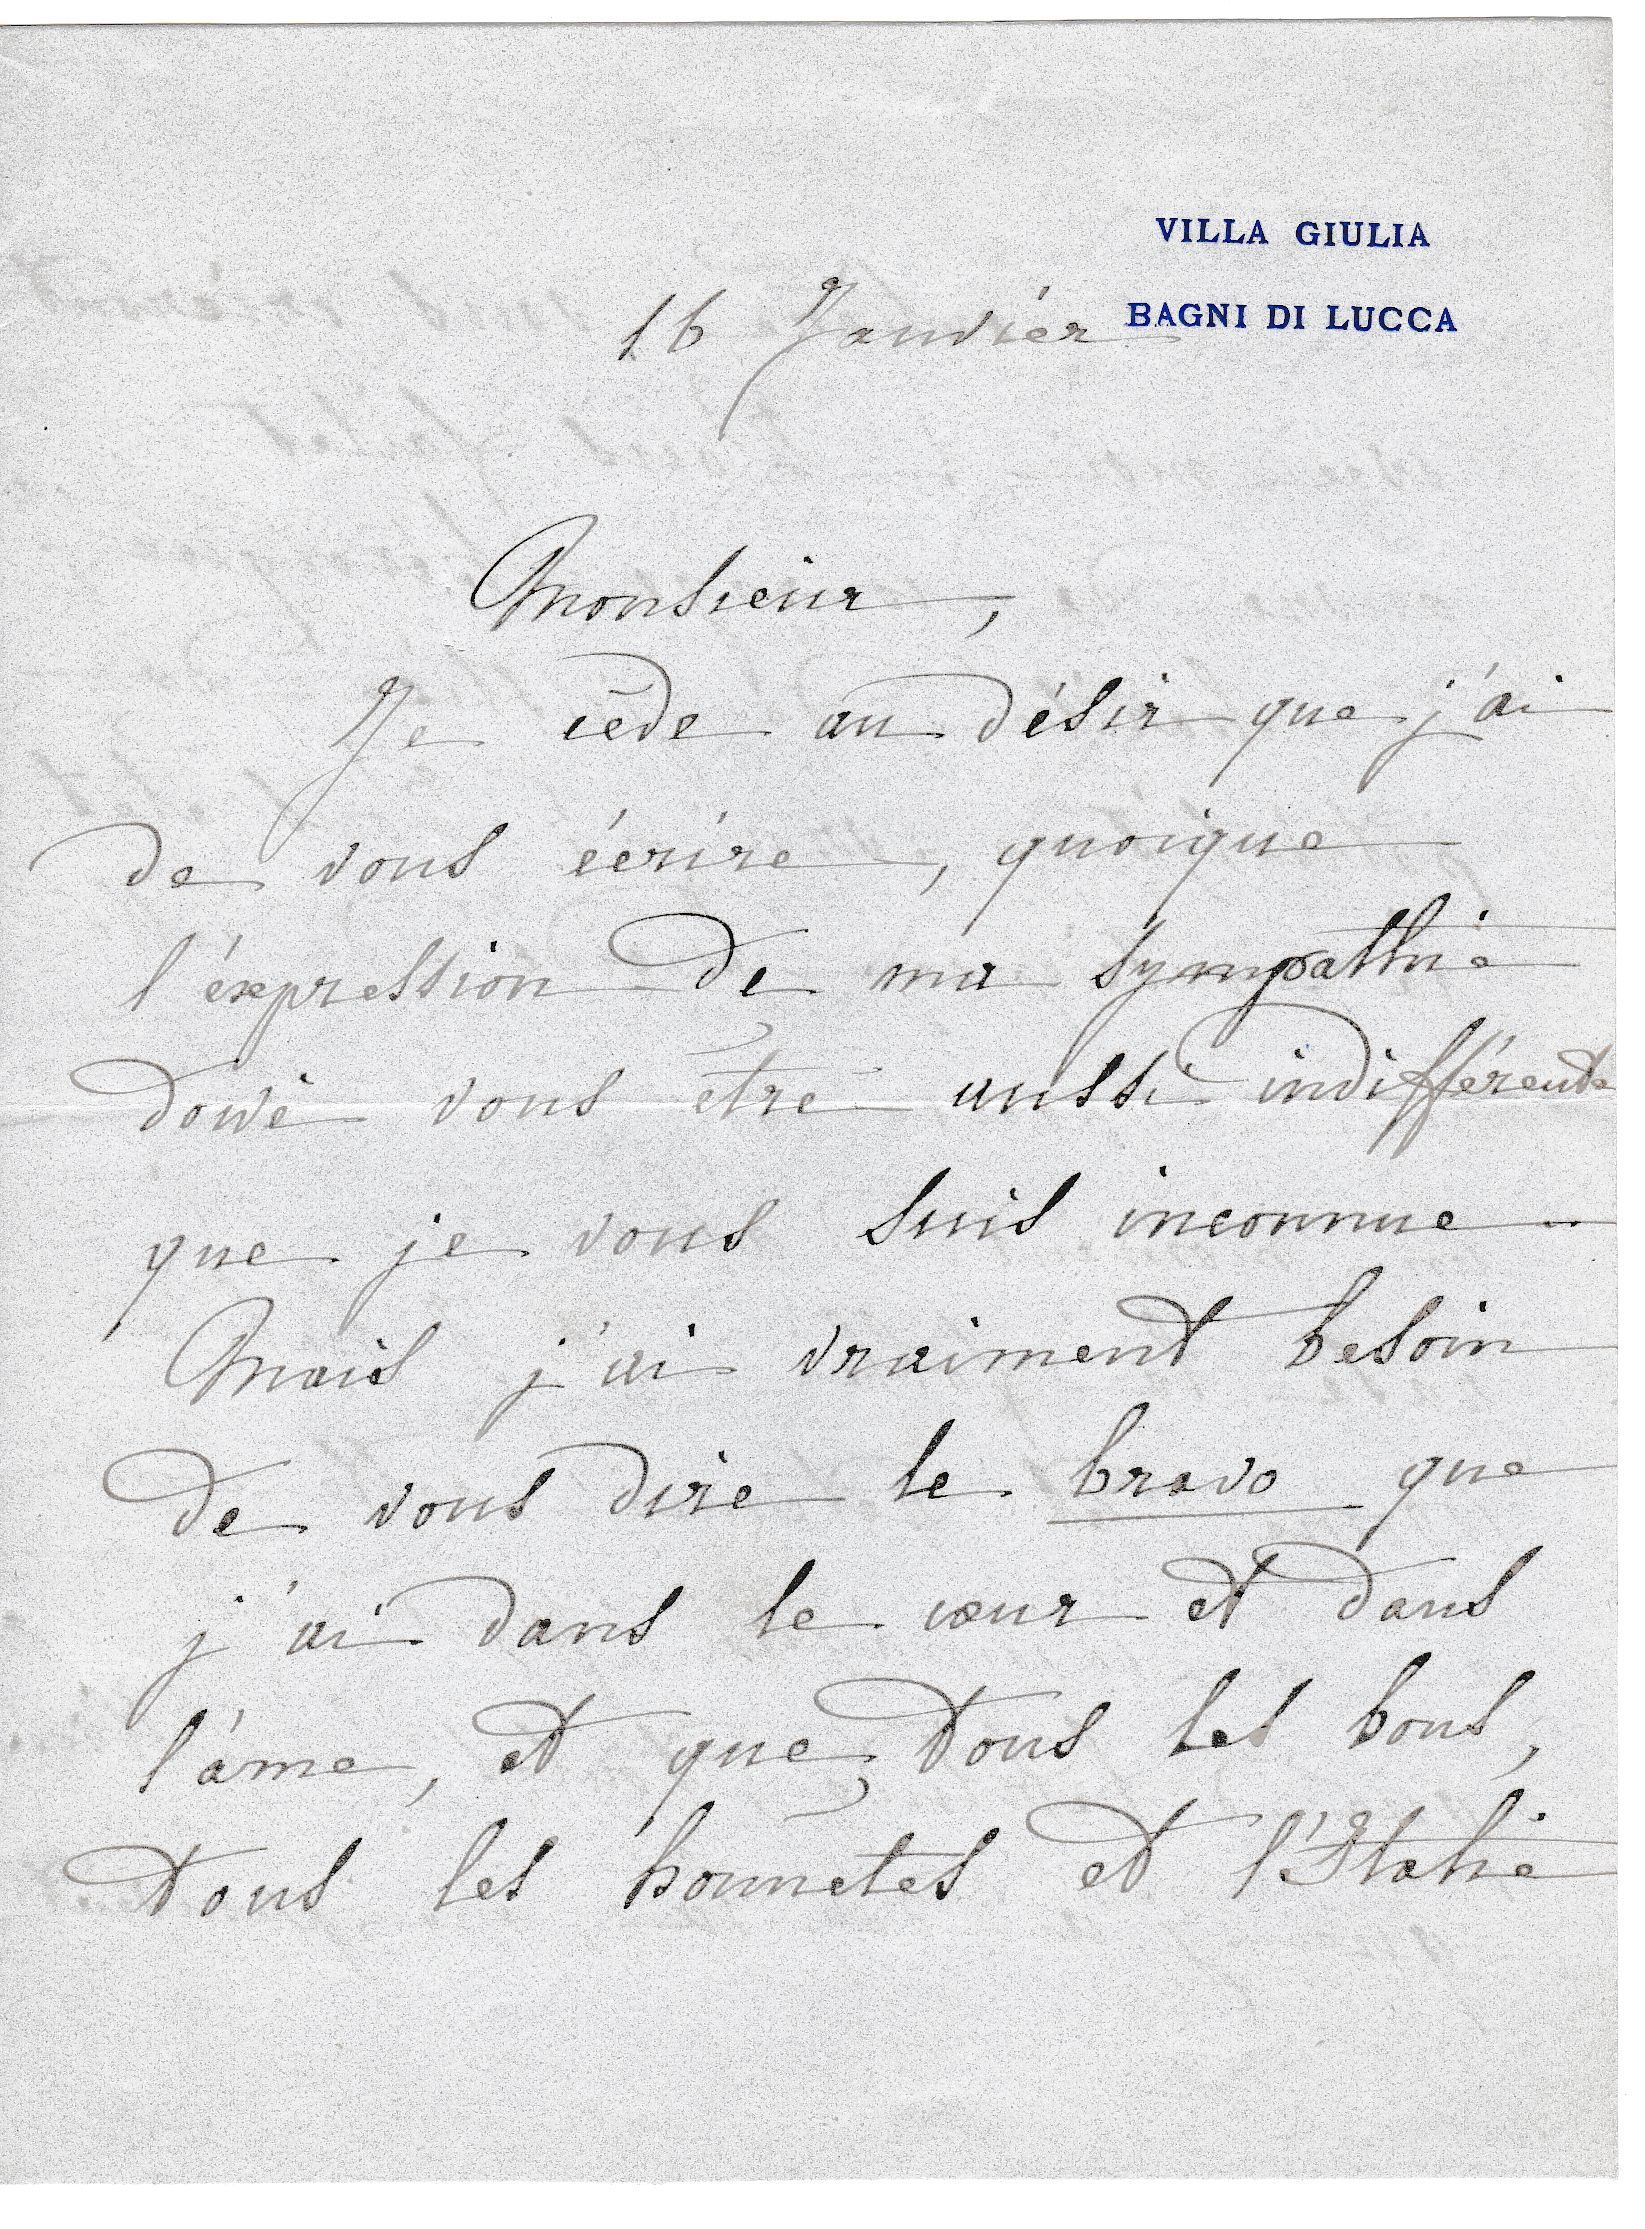 VILLA GIULIA
BAGNI DI LUCCA
16 Janvier
Monsieur,
Je cède au désir que j'ai
de vous écrire, quoique
l'éxpression de ma sympathie
doive vous être aussi indifférente
que je vous suis inconnue.
Mais j'ai vraiment besoin
de vous dire le bravo que
j'ai dans le cœur et dans
l'âme, et que tous les bons,
tous les honnêtes et l'Italie